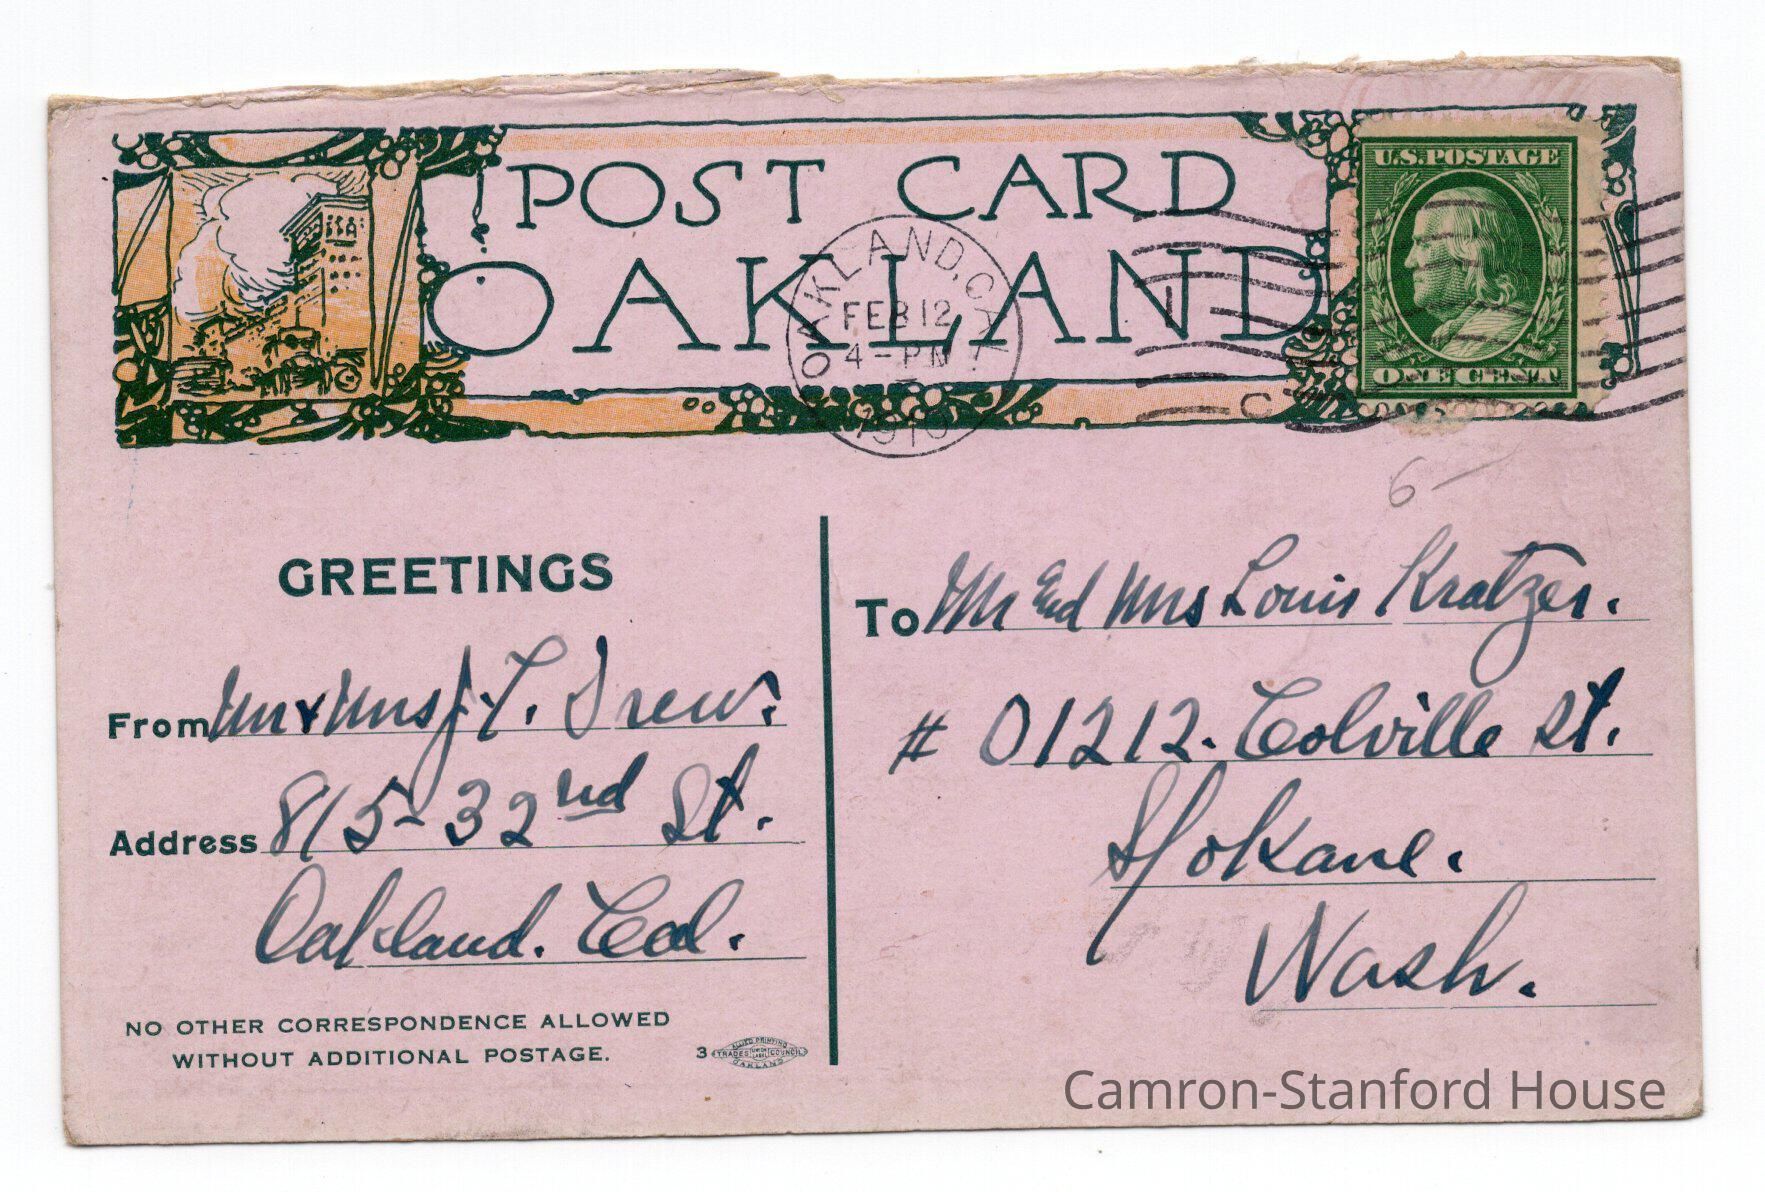 POST CARD
OAKLAND
U.S. POSTAGE
ONE CENT
OAKLAND, CAL
FEB 12
4 - PM
1910
1
C
6 -
GREETINGS
From Mr & Mrs J. T. Drew.
Address 815-32nd St.
Oakland. Cal.
NO OTHER CORRESPONDENCE ALLOWED
WITHOUT ADDITIONAL POSTAGE.
3 ALLIED PRINTING
TRADES UNION LABEL COUNCIL
OAKLAND
To Mr End Mrs Louis Kratzer.
# 01212. Colville St.
Spokane.
Wash.
Camron-Stanford House